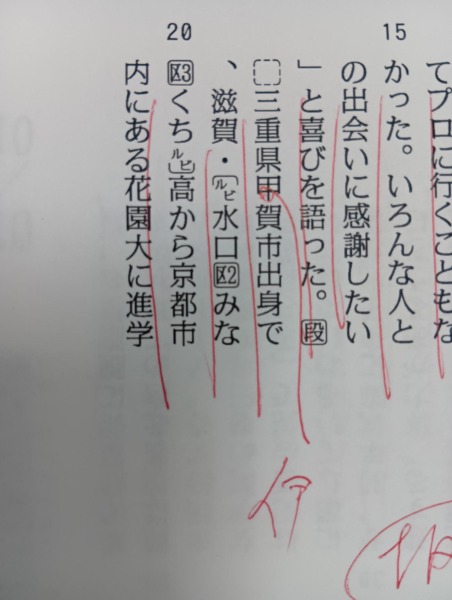 てプロに行くこともな
15
かった。いろんな人と
の出会いに感謝したい
」と喜びを語った。段
三重県甲賀市出身で
、滋賀・ルビ水口区2みな
20
区3くちルビ高から京都市
内にある花園大に進学
伊